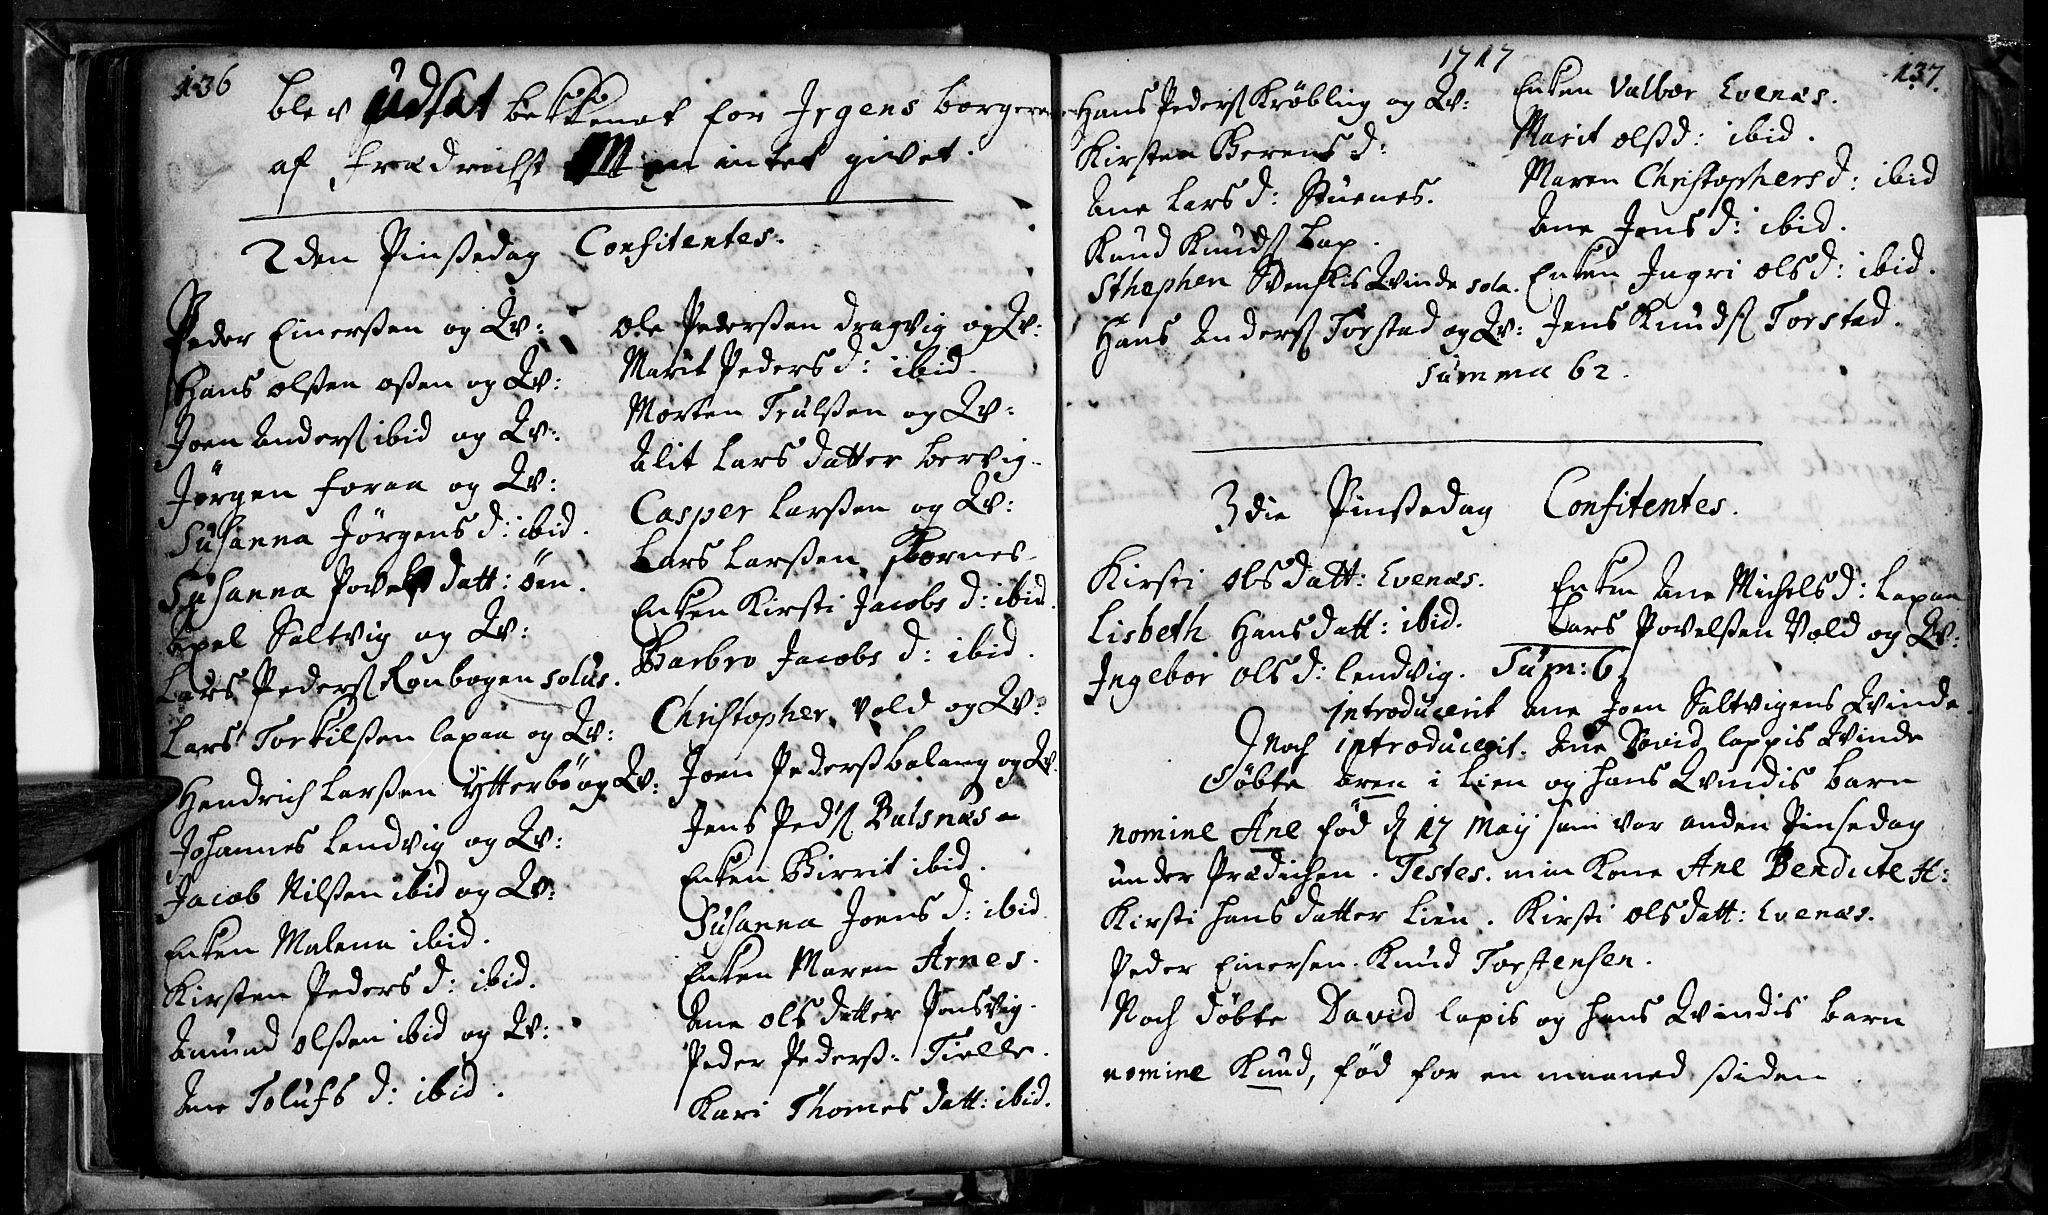 136
blev udsat bekkenet for Irgens borgerne
af fredrichst M en intet givet.
2den Pinsedag Confitentes.
Peder Einerßen og Qv:
Hans olßen oßen og Qv:
Joen Anders ibid og Qv:
Jörgen foraa og Qv:
Susanna Jörgens d: ibid.
Susanna Povels datt: öen.
Axel Saltvig og Qv:
Lars Peders Konbogen solus.
Lars Torkilßen lapaa og Qv:
Hendrich Larßen ytterbö og Qv:
Johannes Lendvig og Qv:
Jacob Nilßen ibid og Qv:
Enken Malena ibid.
Kirsten Peders d: ibid.
Amund olßen ibid og Qv:
Ane Tolufs d: ibid.
ole Pederßen dragvig og Qv:
Marit Peders d: ibid.
Morten Trulßen og Qv:
Alit Lars datter bervig.
Casper Larßen og Qv:
Lars Larßen
Enken Kirsti Jacobs d: ibid.
Barbro Jacobs d: ibid.
Christopher Vold og Qv:
Joen Peders balang og Qv:
Jens Peds Balsnæs
Enken Birrit ibid.
Susanna Joens d: ibid
Enken Maren Arnes.
Ane ols datter Ponsvig.
Peder Peders: Tielle.
Kari Thomes datt: ibid.
1717
137.
Hans Peders Kröbling og Qv:
Kirsten Berens d:
Ane Lars d: Stuenes.
Knud Knuds Lap.
Sthephen Svenskis Qvinde sola.
Hans Anders Torstad og Qv:
Enken Valbor Evenæs.
Marit olsd: ibid.
Maren Christophers d: ibid
Ane Jens d: ibid.
Enken Ingri ols d: ibid.
Jens Knuds Torstad.
Summa 62.
3die Pinßedag Confitentes.
Kirsti ols datt: Evenæs.
Lisbeth Hans datt: ibid.
Ingebor ols d: lendvig.
Enken Ane Michels d: Lapaa
Lars Povelßen Vold og Qv:
Sum: 6
introducerit Ane Joen Saltvigens Qvinde.
Noch introducerit. Ane David lappis Qvinde
Döbte Aren i Lien og hans Qvindis barn
nomine Ane föd d 17 Maij som var anden Pinsedag
under Prædichen. Testes. min Kone Ane Bendicte H:
Kirsti hans datter Lien. Kirsti ols datt: Evenæs.
Peder Einersen. Knud Torstensen.
Noch döbte David lapis og hans Qvindis barn
nomine Knud, föd for en maaned siden.